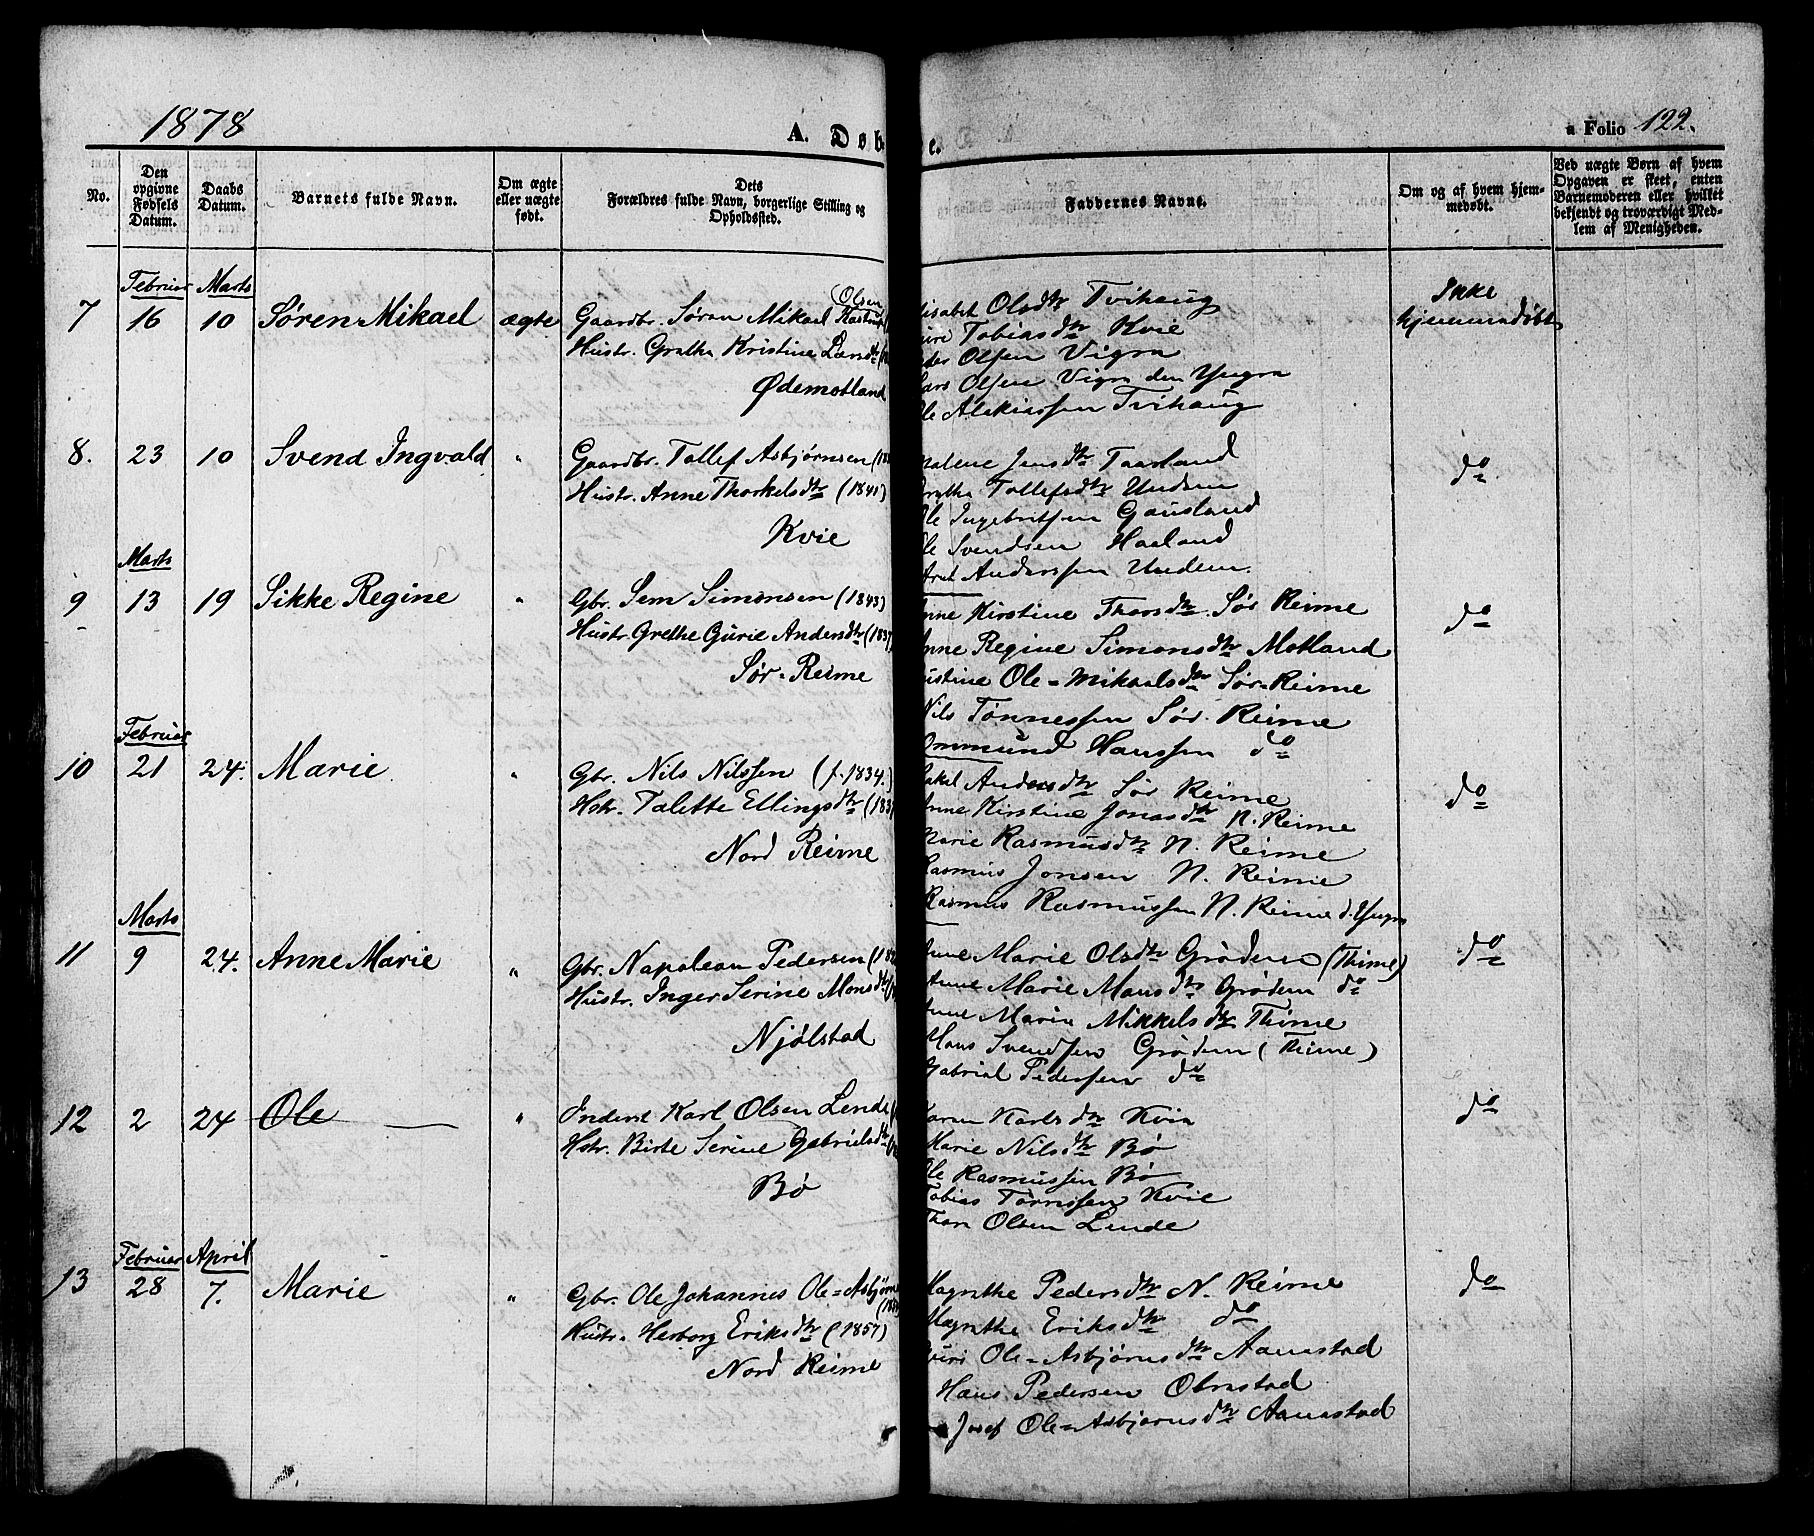 1878
A. Døb
e.
a Folio 122.
No.
Den opgivne Fødsels Datum.
Daabs Datum.
Barnets fulde Navn.
Om ægte eller uægte født.
Dets Forældres fulde Navn, borgerlige Stilling og Opholdssted.
Faddernes Navne.
Om og af hvem hjemmedøbt.
Ved uægte Børn af hvem Opgaven er skeet, enten Barnemoderen eller hvilket bekjendt og troværdigt Medlem af Menigheden.
Februar Marts
7 16 10 Søren Mikael ægte
(Olsen
Gaardbr. Søren Mikael
Hustr. Grethe Kristine
Ødemotland
Olsdtr Tvihaug
Tobiasdtr Kvie
Olsen Vigra
Olsen Vigra den Yngra
Alekiassen Tvihaug
Ikke
hjemmedøbt
8. 23 10 Svend Ingvald "
Gaardbr. Tollef Asbjørnsen
Hustr. Anne Thorkelsdtr (1841)
Kvie
Malene Jensdtr Taarland
Tollefsdtr Undem
Ole Ingebritsen Gausland
Ole Svendsen Haaland
Anderssen Undem.
do
Marts
9 13 19 Sikke Regine "
Gbr. Sem Simonsen (1843)
Hustr. Grethe Gurie Andersdtr
Sør-Reime
Anne Kirstine Thorsdtr. Sør Reime
Anne Regine Simonsdtr Motland
Ole=Mikaelsdtr Sør-Reime
Nils Tønnessen Sør-Reime
Ommund Hanssen do
do
Februar
10 21 24. Marie "
Gbr. Nils Nilssen (f. 1834.)
Hstr. Talette Ellingsdtr
Nord Reime
Andersdtr Sør Reime
Anne Kirstine Jonasdtr N. Reime
Marie Rasmusdtr N. Reime
Rasmus Jonsen N. Reime
Rasmus Rasmussen N. Reime d. Yngre
do
Marts
11 9 24. Anne Marie "
Gbr. Napoleon Pedersen
Hustr. Inger Serine Monsdtr
Njølstad
Anne Marie Olsdtr Grødem (Thime)
Anne Marie Monsdtr Grødem do
Anne Marie Mikkelsdtr Thime
Hans Svendsen Grødem (Thime)
Gabriel Pedersen do
do
12 2 24 Ole "
Inderst Karl Olsen Lende
Hstr. Birte Serine Gabrielsdtr
Bø
Karen Karlsdtr Kvia
Marie Nilsdtr Bø
Ole Rasmussen Bø
Tobias Tørressen Kvie
Thore Olsen Lende
do
Februar April
13 28 7. Marie "
Gbr. Ole Johannes Ole=Asbjørns
Hustr. Herborg Eriksdtr (1857)
Nord Reime
Magnthe Pedersdtr N. Reime
Magnthe Eriksdtr do
Guri Ole=Asbjørnsdtr Aanestad
Hans Pedersen Obrestad
Josef Ole=Asbjørnsdtr Aanestad
do